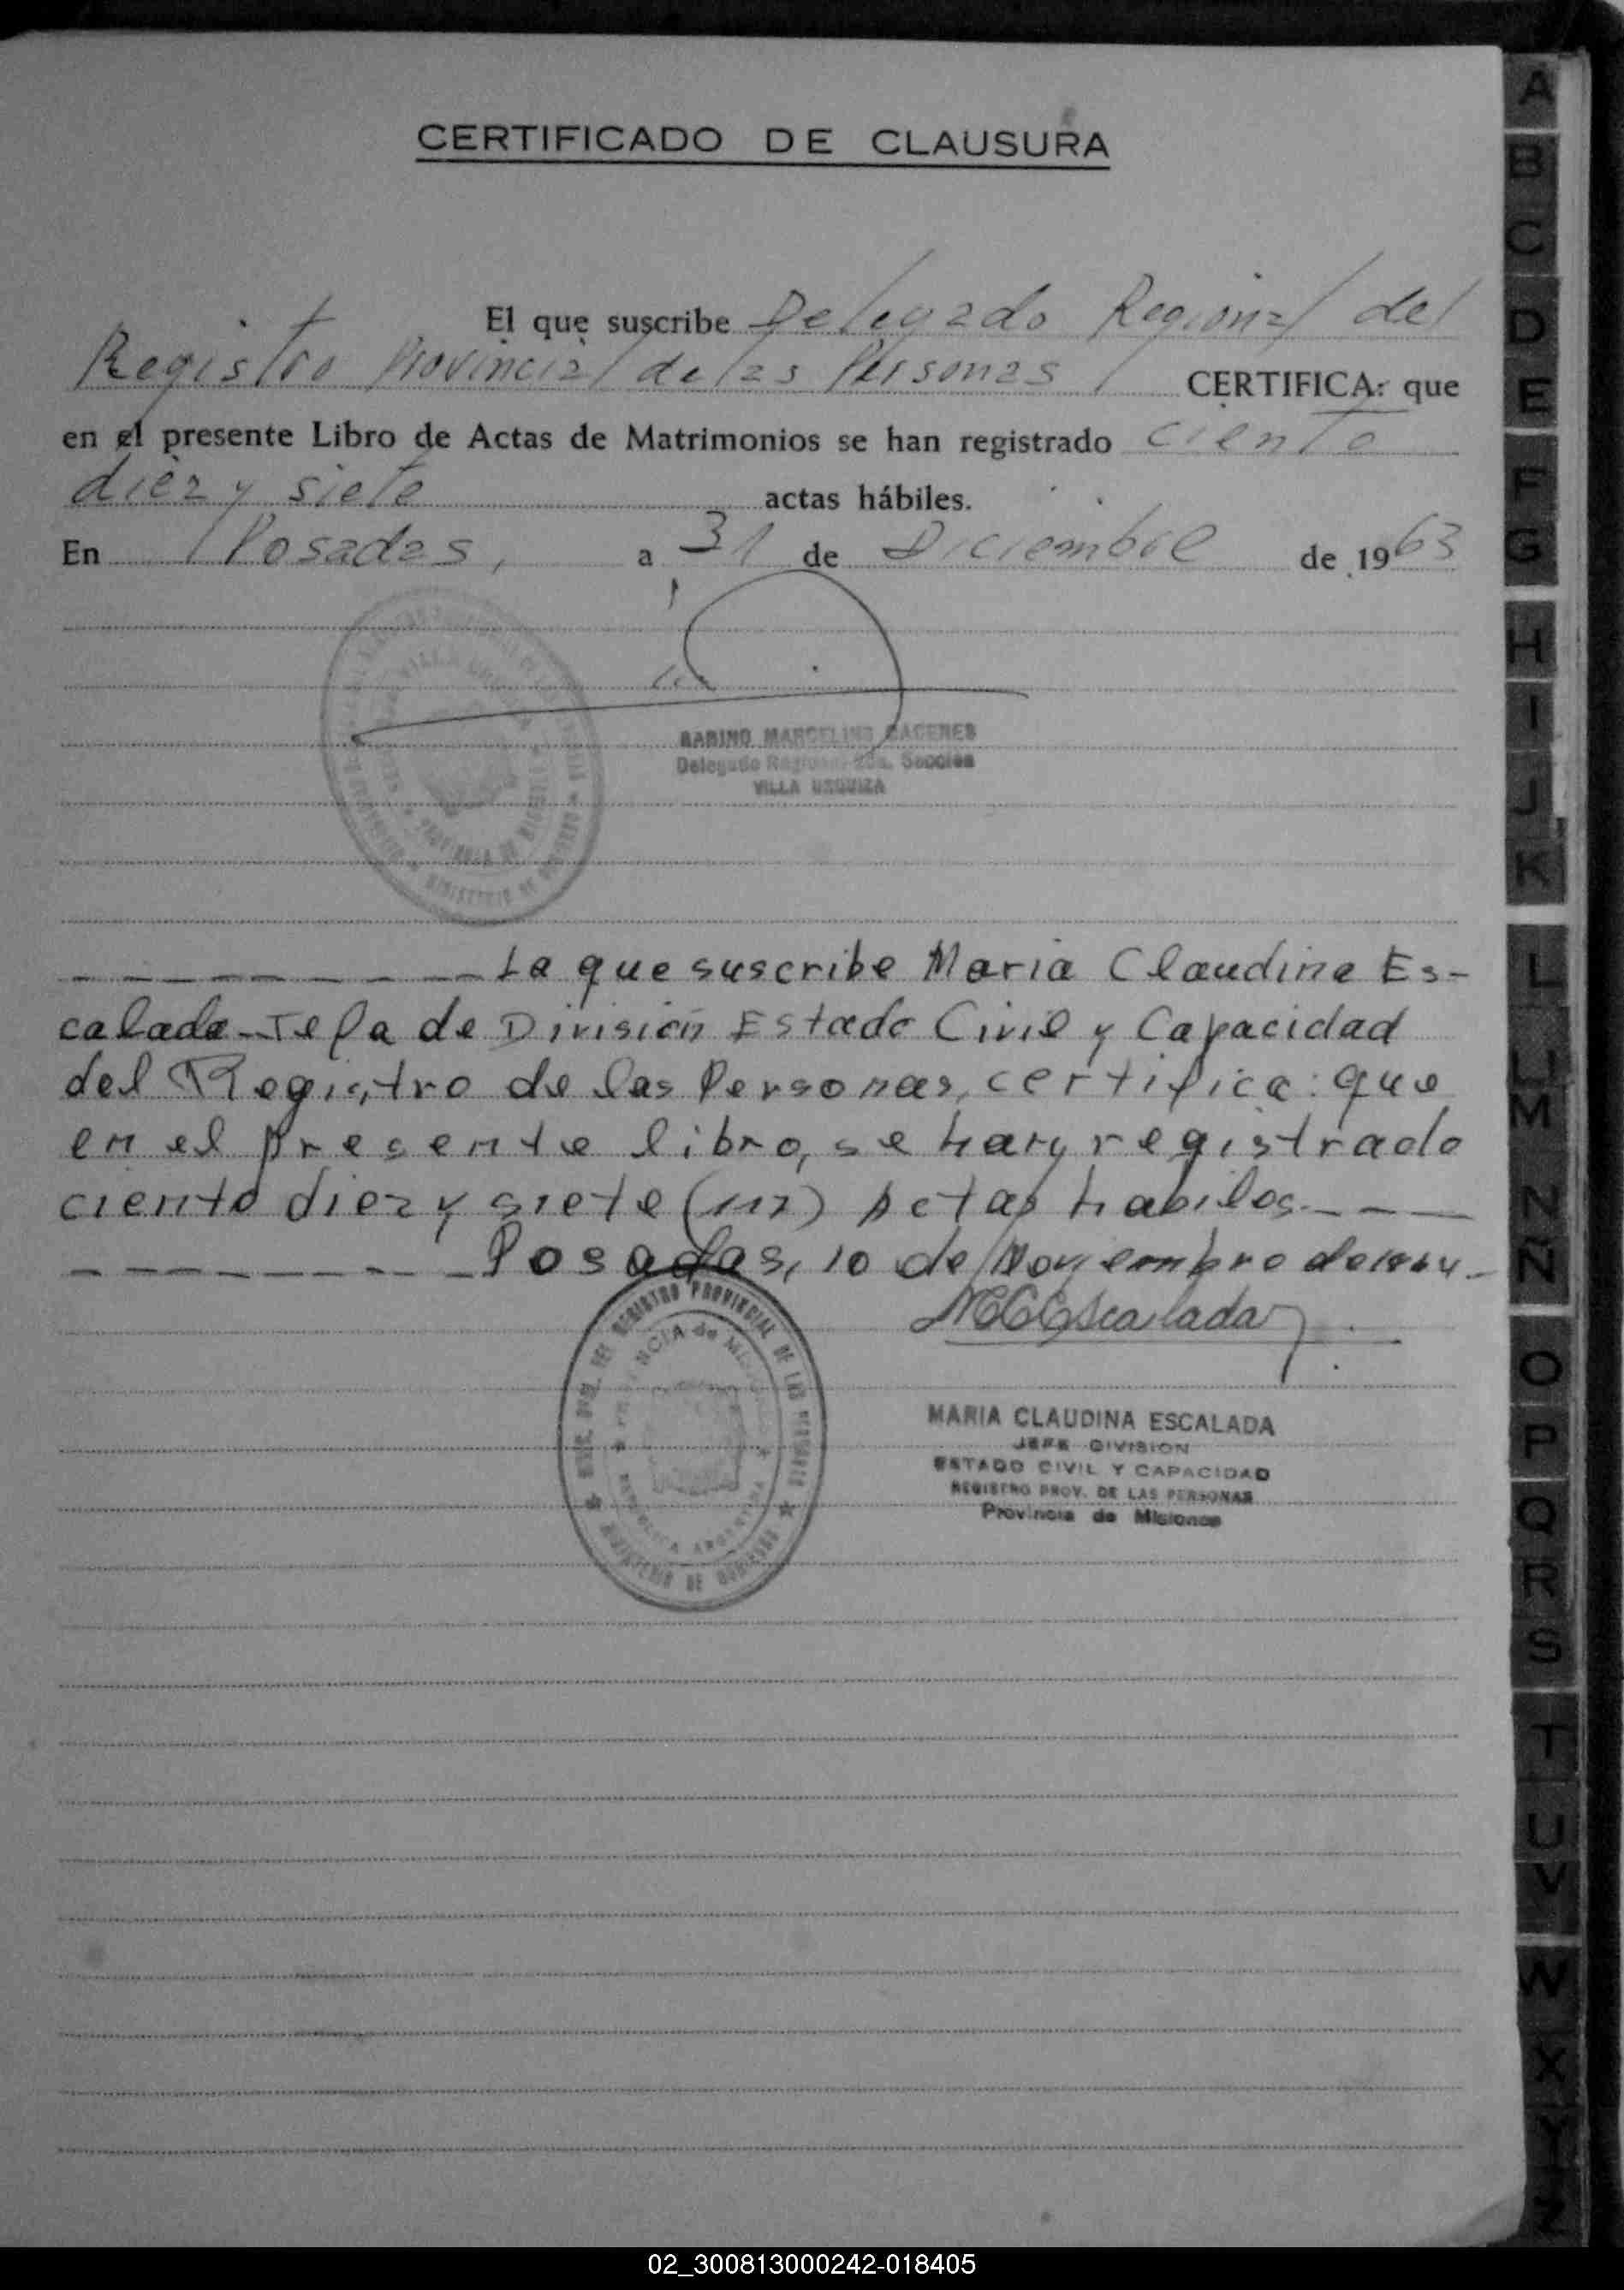 CERTIFICADO DE CLAUSURA
El que suscribe Delegado Regional del
Registro Provincial de las Personas CERTIFICA: que
en el presente Libro de Actas de Matrimonios se han registrado ciento
diez y siete actas hábiles.
En Posadas, a 31 de Diciembre de 1963
SABINO MARCELINO CACERES
Delegado Regional 2da. Sección
VILLA URQUIZA
La que suscribe Maria Claudina Es-
calada Jefa de División Estado Civil y Capacidad
del Registro de las Personas, certifica: que
en el presente libro, se han registrado
ciento diez y siete (117) Actas habiles.
Posadas, 10 de Noviembre de 1964.
MCEscalada
DIR. GRAL. DEL REGISTRO PROVINCIAL DE LAS PERSONAS
PROVINCIA de MISIONES
REPUBLICA ARGENTINA
MINISTERIO DE GOBIERNO
MARIA CLAUDINA ESCALADA
JEFE DIVISION
ESTADO CIVIL Y CAPACIDAD
REGISTRO PROV. DE LAS PERSONAS
Provincia de Misiones
A
B
C
D
E
F
G
H
I
J
K
L
LL
M
N
Ñ
O
P
Q
R
S
T
U
V
W
X
Y
Z
02_300813000242-018405